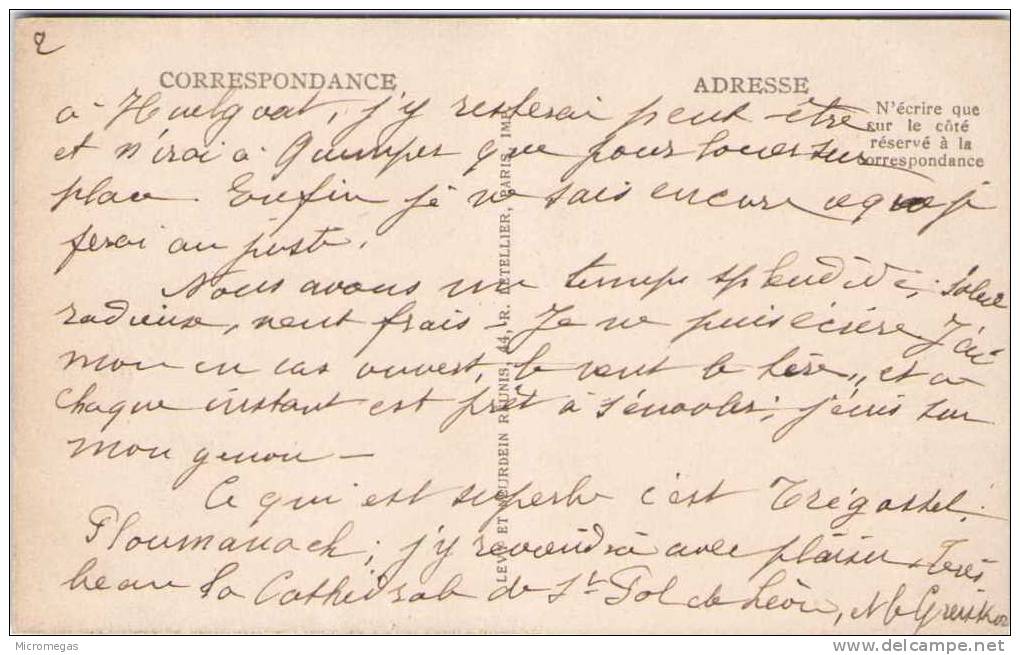 2
CORRESPONDANCE
ADRESSE
N'écrire que
sur le côté
réservé à la
correspondance
LEVY ET NEURDEIN RÉUNIS, 44, R. LETELLIER, PARIS, IMP.
à Huelgoat, j'y resterai peut-être
et n'irai à Quimper que pour louer sur
place. Enfin je ne sais encore ce que je
ferai au juste.
Nous avons un temps splendide, soleil
radieux, vent frais – Je ne puis écrire J'ai
mon en cas ouvert, le vent le et à
chaque instant est prêt à s'envoler; j'écris sur
mon genou –
Ce qui est superbe c'est Trégastel,
Ploumanach; j'y reviendrai avec plaisir. Très
beau la Cathédrale de St Pol de Léon, Kreisker
Micromegas
www.delcampe.net